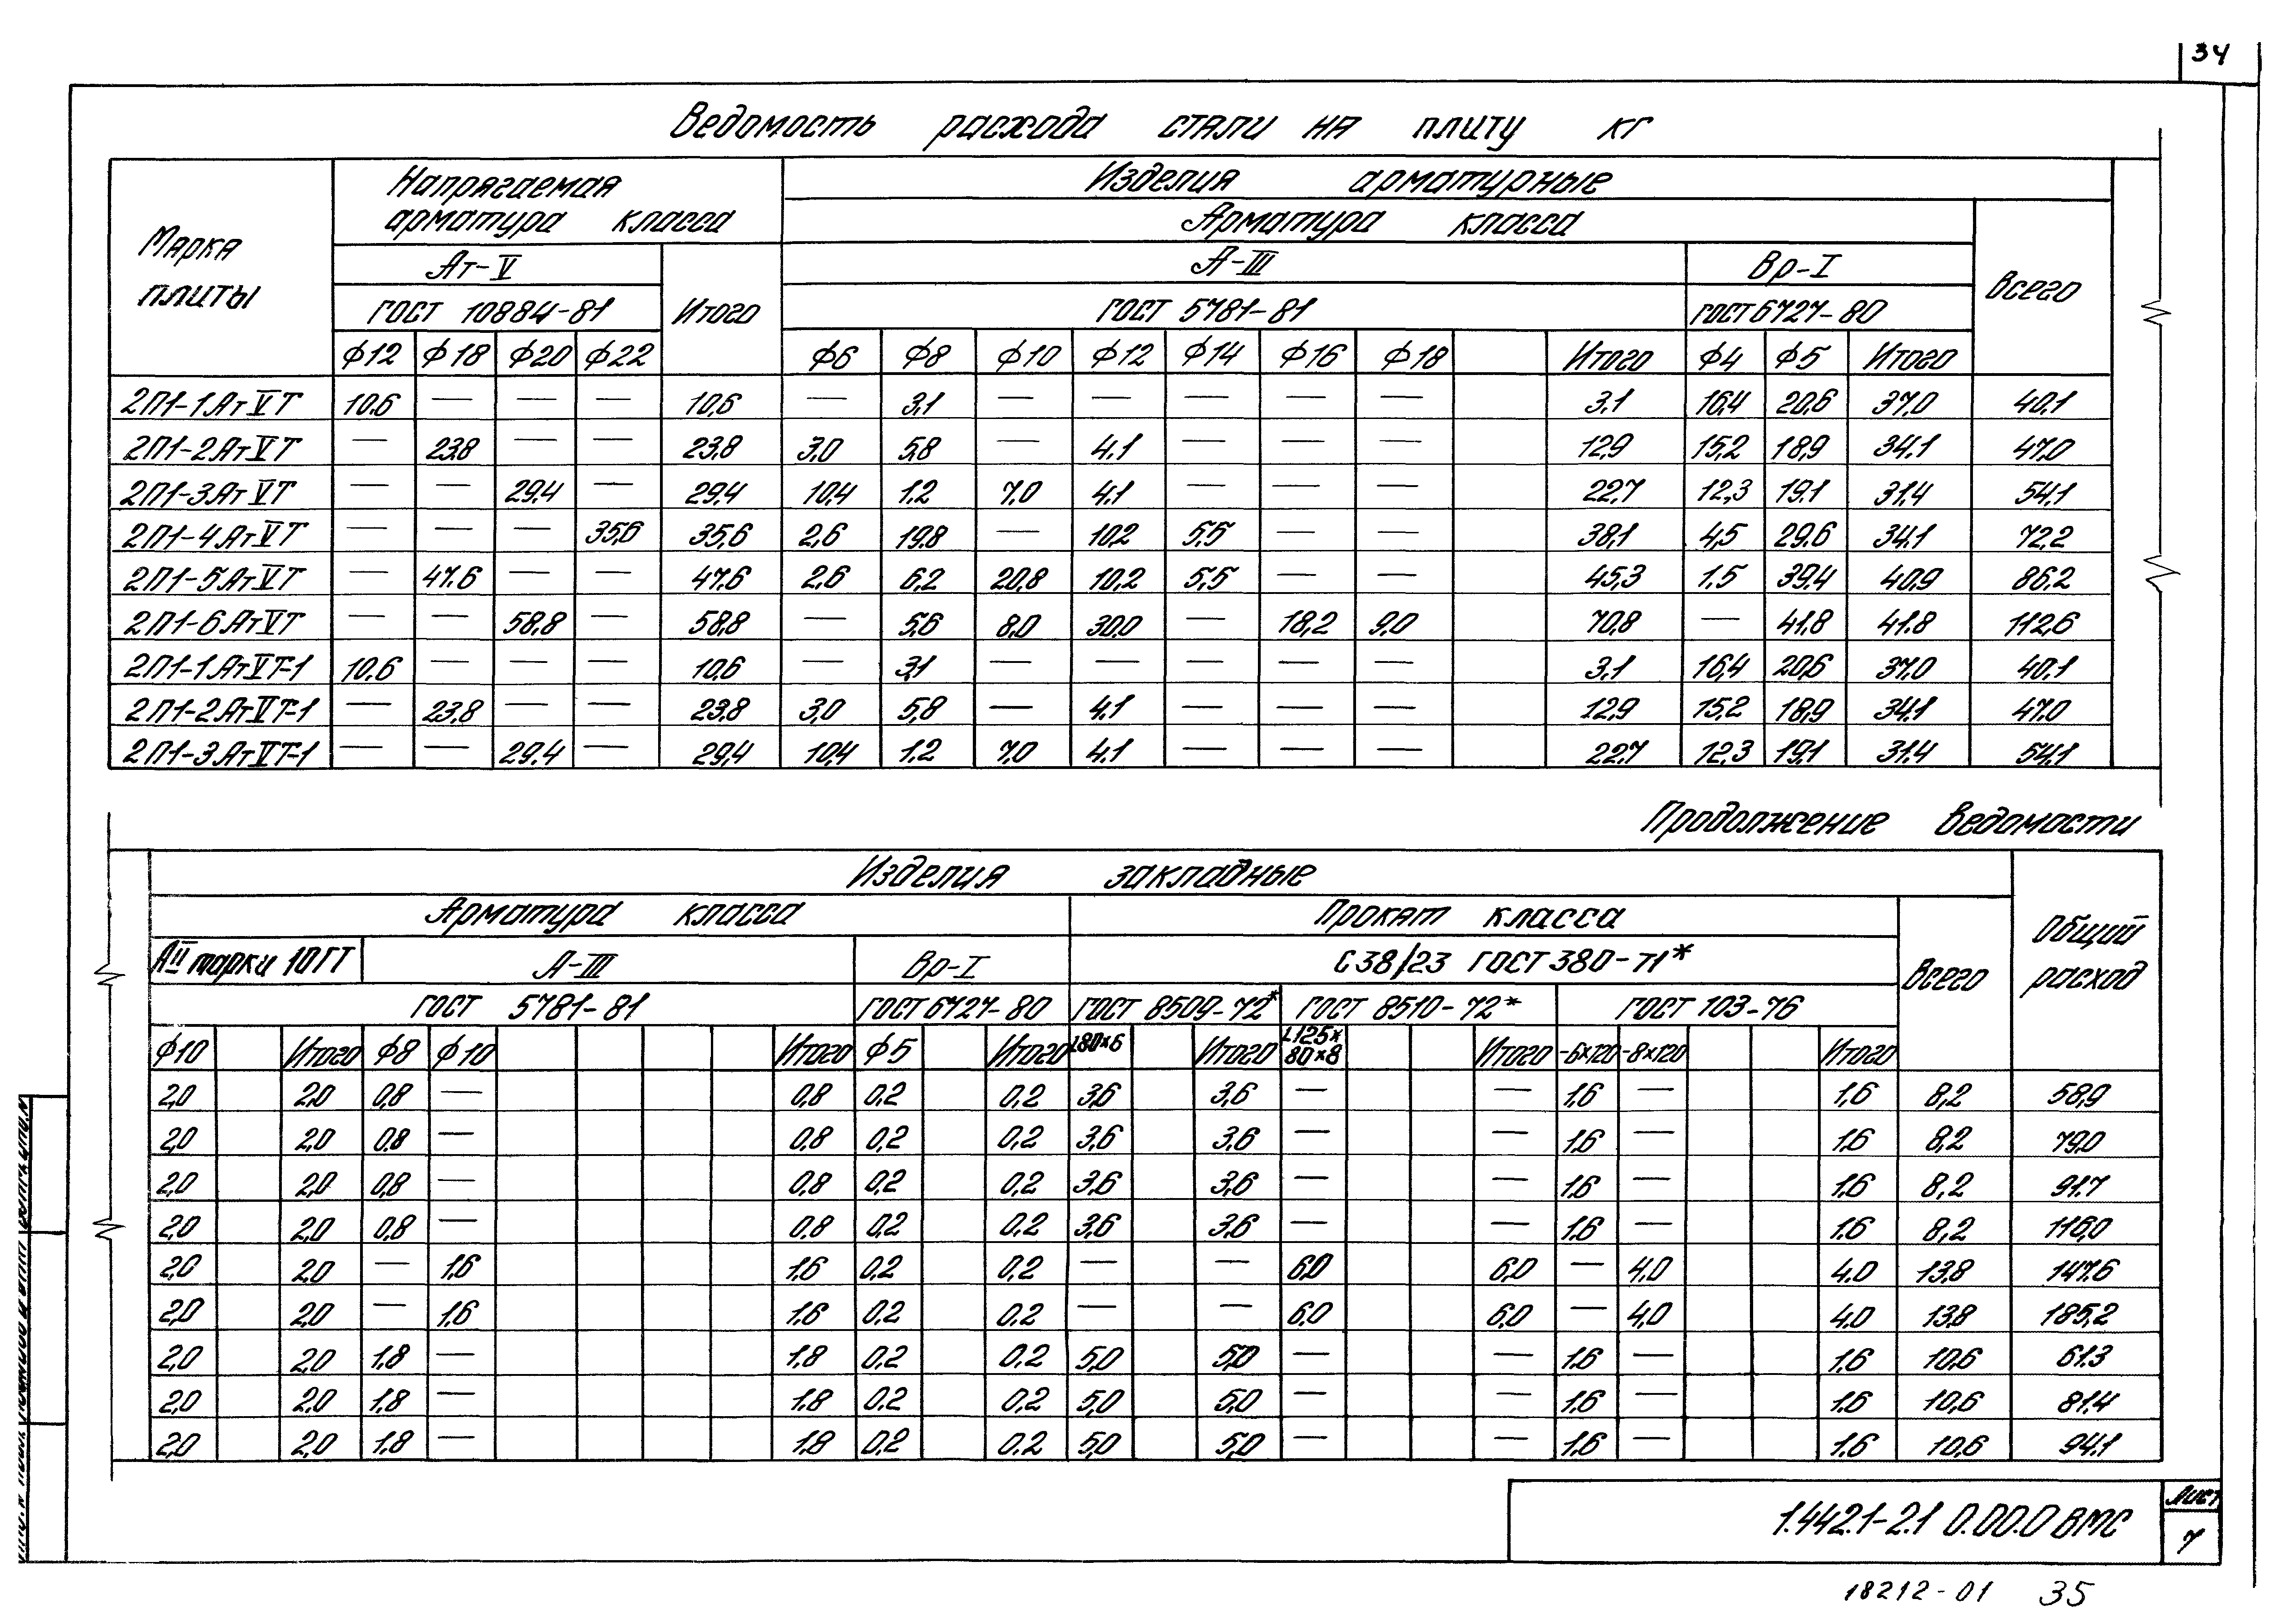 34
Ведомость расхода стали на плиту кг
Марка плиты
Напрягаемая арматура класса
Изделия арматурные
Арматура класса
Ат-V
Итого
А-III
Вр-I
Всего
ГОСТ 10884-81
ГОСТ 5781-81
ГОСТ 6727-80
ф12 ф18 ф20 ф22 ф6 ф8 ф10 ф12 ф14 ф16 ф18 Итого ф4 ф5 Итого
2П1-1АтVТ 10.6 — — — 10,6 — 3,1 — — — — — 3,1 16,4 20,6 37,0 40,1
2П1-2АтVТ — 23,8 — — 23,8 3,0 5,8 — 4.1 — — — 12,9 15,2 18,9 34.1 47,0
2П1-3АтVТ — — 29,4 — 29,4 10,4 1.2 7,0 4.1 — — — 22,7 12,3 19.1 31,4 54,1
2П1-4АтVТ — — — 35,6 35,6 2,6 19,8 — 10,2 5,5 — — 38,1 4,5 29,6 34.1 72,2
2П1-5АтVТ — 47.6 — — 47.6 2,6 6,2 20,8 10,2 5,5 — — 45,3 1,5 39,4 40,9 86,2
2П1-6АтVТ — — 58,8 — 58,8 — 5,6 8,0 30,0 — 18,2 9,0 70,8 — 41,8 41.8 112,6
2П1-1АтVТ-1 10.6 — — — 10,6 — 3,1 — — — — — 3,1 16,4 20,6 37,0 40,1
2П1-2АтVТ-1 — 23,8 — — 23,8 3,0 5,8 — 4.1 — — — 12,9 15,2 18,9 34.1 47,0
2П1-3АтVТ-1 — — 29.4 — 29,4 10,4 1.2 7,0 4.1 — — — 22,7 12,3 19,1 31.4 54,1
Продолжение ведомости
Изделия закладные
Общий расход
Арматура класса
Прокат класса
Всего
АII марки 10ГТ
А-III
Вр-I
С38/23 ГОСТ 380-71*
ГОСТ 5781-81
ГОСТ 6727-80
ГОСТ 8509-72*
ГОСТ 8510-72*
ГОСТ 103-76
ф10 Итого ф8 ф10 Итого ф5 Итого L80×6 Итого L125×80×8 Итого -6×120 -8×120 Итого
2,0 2,0 0,8 — 0,8 0,2 0,2 3,6 3,6 — — 1.6 — 1.6 8,2 58,9
2,0 2,0 0,8 — 0,8 0,2 0,2 3,6 3,6 — — 1.6 — 1.6 8,2 79,0
2,0 2,0 0,8 — 0,8 0,2 0,2 3,6 3,6 — — 1.6 — 1.6 8,2 91.7
2,0 2,0 0,8 — 0,8 0,2 0,2 3,6 3,6 — — 1.6 — 1.6 8,2 116,0
2,0 2,0 — 1.6 1.6 0,2 0,2 — — 6,0 6,0 — 4,0 4,0 13,8 147.6
2,0 2,0 — 1.6 1.6 0,2 0,2 — — 6,0 6,0 — 4,0 4,0 13,8 185,2
2,0 2,0 1.8 — 1.8 0,2 0,2 5,0 5,0 — — 1.6 — 1.6 10,6 61.3
2,0 2,0 1.8 — 1.8 0,2 0,2 5,0 5,0 — — 1.6 — 1.6 10,6 81.4
2,0 2,0 1.8 — 1.8 0,2 0.2 5,0 5,0 — — 1.6 — 1.6 10,6 94.1
1.442.1-2.1 0.00.0 ВМС
Лист
7
18212-01 35